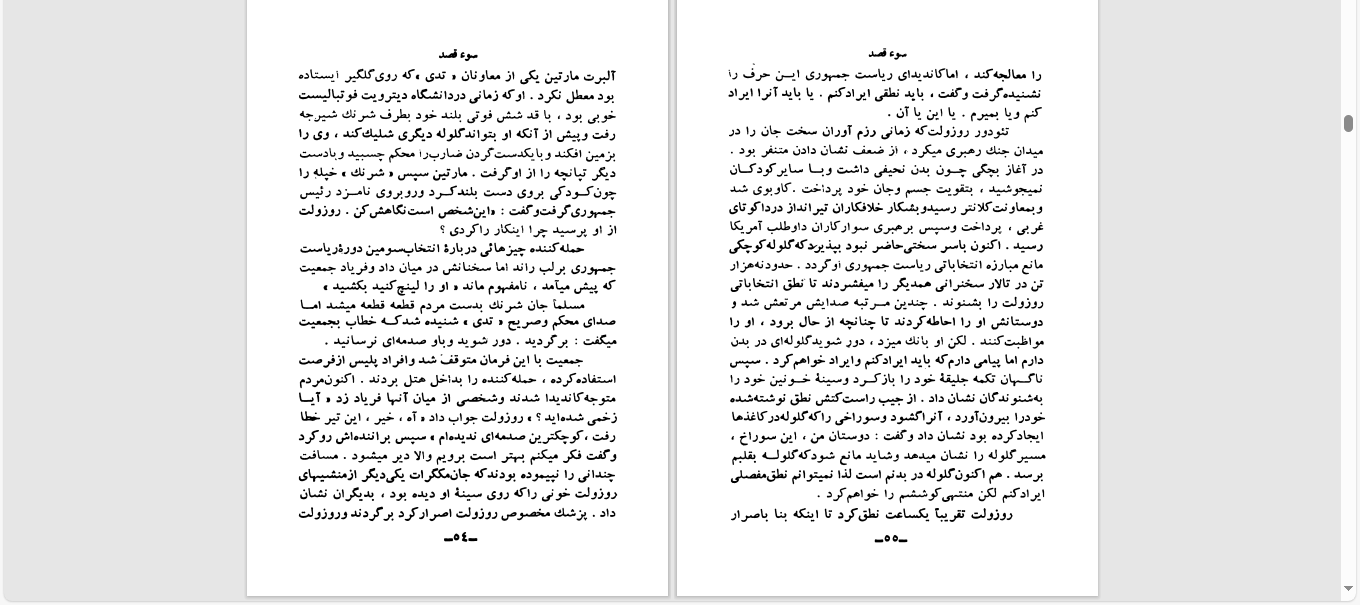 سوء قصد
آلبرت مارتین یکی از معاونان « تدی » که روی گلگیر ایستاده
بود معطل نکرد . او که زمانی دردانشگاه دیترویت فوتبالیست
خوبی بود ، با قد شش فوتی بلند خود بطرف شرنك شیرجه
رفت وپیش از آنکه او بتواند گلوله دیگری شلیك کند ، وی را
بزمین افکند وبایکدست گردن ضارب را محکم چسبید وبادست
دیگر تپانچه را از او گرفت . مارتین سپس « شرنك » خپله را
چون کودکی بروی دست بلند کرد وروبروی نامزد رئیس
جمهوری گرفت و گفت : «این شخص است نگاهش کن . روزولت
از او پرسید چرا اینکار راکردی ؟
حمله کننده چیزهائی دربارهٔ انتخاب سومین دورهٔ ریاست
جمهوری برلب راند اما سخنانش در میان داد وفریاد جمعیت
که پیش میآمد ، نامفهوم ماند « او را لینچ کنید بکشید »
مسلماً جان شرنك بدست مردم قطعه قطعه میشد اما
صدای محکم وصریح « تدی » شنیده شد که خطاب بجمعیت
میگفت : برگردید . دور شوید وباو صدمه‌ای نرسانید .
جمعیت با این فرمان متوقف شد وافراد پلیس ازفرصت
استفاده کرده ، حمله کننده را بداخل هتل بردند . اکنون مردم
متوجه کاندیدا شدند وشخصی از میان آنها فریاد زد « آیا
زخمی شده‌اید ؟ » روزولت جواب داد « آه ، خیر ، این تیر خطا
رفت ، کوچکترین صدمه‌ای ندیده‌ام » سپس براننده‌اش روکرد
وگفت فکر میکنم بهتر است برویم والا دیر میشود . مسافت
چندانی را نپیموده بودند که جان مکگرات یکی دیگر ازمنشیهای
روزولت خونی راکه روی سینهٔ او دیده بود ، بدیگران نشان
داد . پزشك مخصوص روزولت اصرار کرد برگردند وروزولت
ـ٥٤ـ
سوء قصد
را معالجه کند ، اما کاندیدای ریاست جمهوری این حرف را
نشنیده گرفت وگفت ، باید نطقی ایراد کنم . یا باید آنرا ایراد
کنم ویا بمیرم . یا این یا آن .
تئودور روزولت که زمانی رزم آوران سخت جان را در
میدان جنك رهبری میکرد ، از ضعف نشان دادن متنفر بود .
در آغاز بچگی چون بدن نحیفی داشت وبا سایر کودکان
نمیجوشید ، بتقویت جسم وجان خود پرداخت . کاوبوی شد
وبمعاونت کلانتر رسید وبشکار خلافکاران تیرانداز درداکوتای
غربی ، پرداخت وسپس برهبری سوارکاران داوطلب آمریکا
رسید . اکنون باسر سختی حاضر نبود بپذیرد که گلوله کوچکی
مانع مبارزه انتخاباتی ریاست جمهوری او گردد . حدود نه هزار
تن در تالار سخنرانی همدیگر را میفشردند تا نطق انتخاباتی
روزولت را بشنوند . چندین مرتبه صدایش مرتعش شد و
دوستانش او را احاطه کردند تا چنانچه از حال برود ، او را
مواظبت کنند . لکن او بانك میزد ، دور شوید گلوله‌ای در بدن
دارم اما پیامی دارم که باید ایراد کنم وایراد خواهم کرد . سپس
ناگهان تکمه جلیقهٔ خود را باز کرد وسینهٔ خونین خود را
به شنوندگان نشان داد . از جیب راست کتش نطق نوشته شده
خودرا بیرون آورد ، آنرا گشود وسوراخی راکه گلوله در کاغذها
ایجاد کرده بود نشان داد وگفت : دوستان من ، این سوراخ ،
مسیر گلوله را نشان میدهد وشاید مانع شود که گلوله بقلبم
برسد . هم اکنون گلوله در بدنم است لذا نمیتوانم نطق مفصلی
ایراد کنم لکن منتهی کوششم را خواهم کرد .
روزولت تقریباً یکساعت نطق کرد تا اینکه بنا باصرار
ـ٥٥ـ